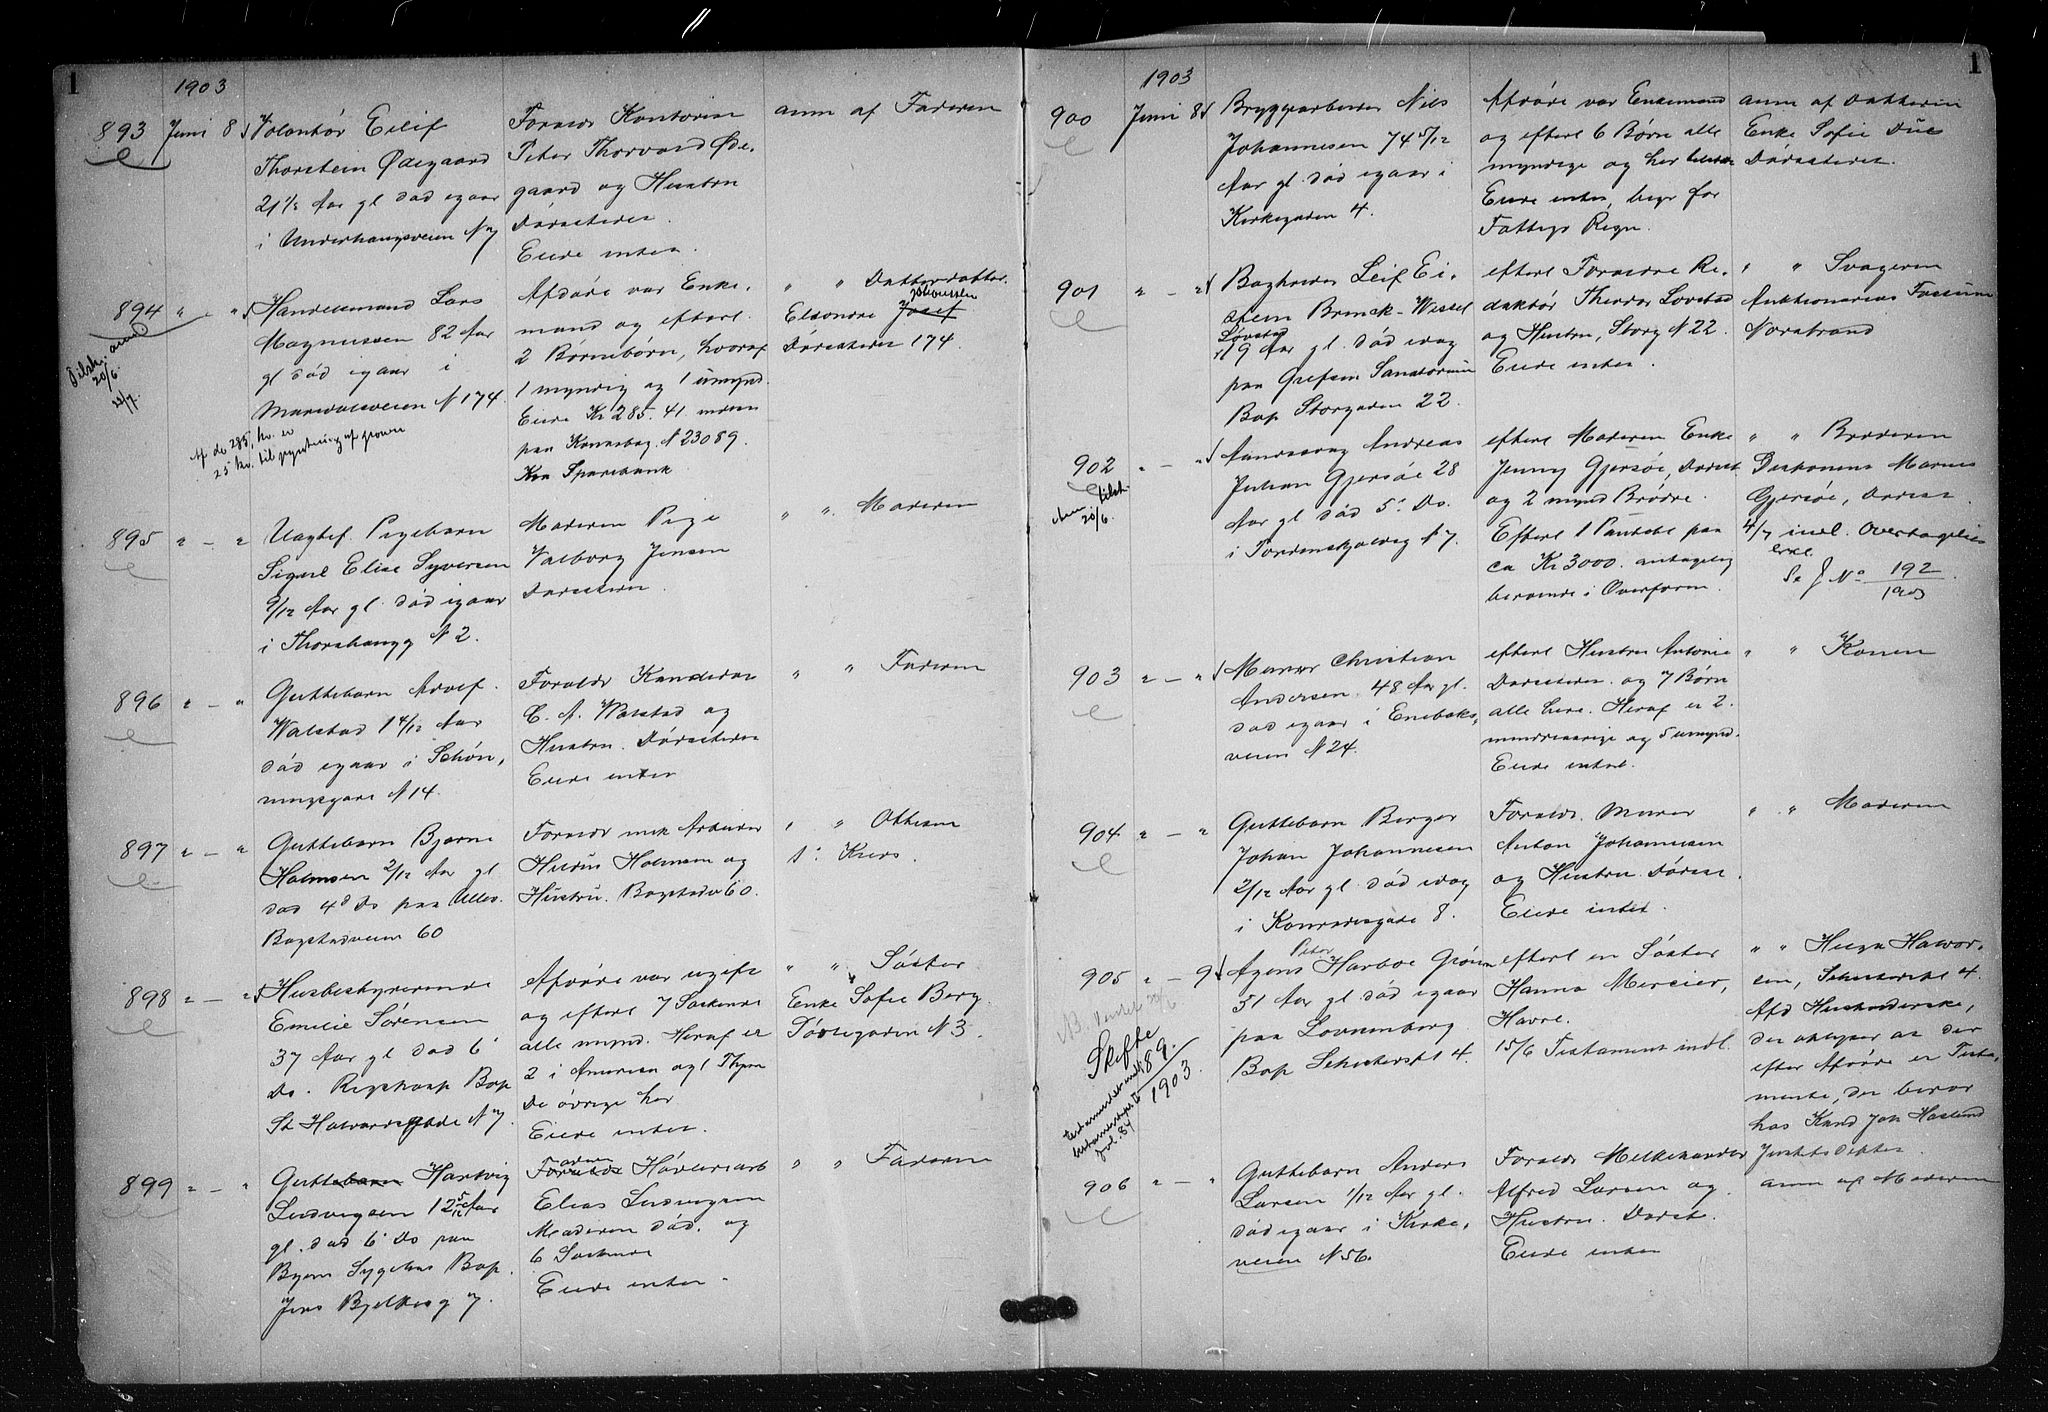 1
1903
893 Juni 8
Volontør Eilif
Thorstein Ødegaard
21 1/2 Aar gl død igaar
i Underhaugsveien N 7
Forældr Kontorist
Peter Thorvald Øde-
gaard og Hustru
Dødsstedet
Eiede intet.
anm af Faderen
894 " " "
Handelsmand Lars
Magnussen 82 Aar
gl død igaar i
Maridalsveien N 174
Afdøde var Enke-
mand og efterl.
2 Børnebørn, hvoraf
1 myndig og 1 umynd.
Eiede Kr 285.41 indest
paa Konrabog N 23089.
Kra Sparebank
" " Datterdatter
Johanssen
Eleonore Josef
Dødsstedet 174.
20/6
Af de 285, kr. er
25 kr. til pyntning af graven
895 " - "
Uægtef. Pigebarn
Signe Elise Syversen
9/12 Aar gl. død igaar
i Thorshaugg N 2.
Moderen Pige
Valborg Jensen
Dødsstedet
" " Moderen
896 " - "
Guttebarn Adolf
Walstad 1 4/12 Aar
død igaar i Schøn-
ningsgade N 14.
Forældr Kandidat
C. A. Walstad og
Hustru. Dødsstedet
Eiede intet
" " Faderen
897 " - "
Guttebarn Bjarne
Holmsen 2/12 Aar gl
død 4d Ds paa Ullev.
Bogstadveien 60
Forældr mek Arbeider
Holmsen og
Hustru. Bogstadv 60.
" " Ottesen
1' Kreds.
898 " - "
Husbestyrerinde
Emilie Sørensen
37 Aar gl død 6'
Ds. Rigshosp Bop
St Halvardsgade N 7
Afdøde var ugift
og efterl 7 Søskende
alle mynd. Heraf er
2 i Amerika og 1 Thjem
De øvrige her
Eiede intet.
" " Søster
Enke Sofie Berg.
Tøiengaden N 3.
899 " - "
Guttebarn Hartvig
Ludvigsen 12 5/12 Aar
gl. død 6' Ds paa
Byens Sygehus Bop.
Jens Bjelkesg 7.
Faderen
Forældr Høvleriarb
Elias Ludvigsen
Moderen død. og
6 Søskende
Eiede intet.
" " Faderen
1
1903
900 Juni 8
Bryggearbeider Nils
Johannesen 74 5/12
Aar gl død igaar i
Kirkegaden 4.
Afdøde var Enkemand
og efterl 6 Børn alle
myndige og her tilstede
Eiede intet, begr for
Fattigv Regn.
anm af Datteren
Enke Sofie Due
Dødsstedet.
901 " - "
Bogholder Leif Ei-
stein Brinck-Wessel
Løvstad
19 Aar gl. død idag
paa Grefsen Sanatorium
Bop Storgaden 22.
efterl Forældre Re-
daktør Theodor Løvstad
og Hustru, Storg N 22.
Eiede intet.
" " Svogeren
Auktionarius Fossum
Nordstrand
902 " - "
Andreas
Johan Gjersøe 28
Aar gl død 5' Ds.
i Tordenskjoldsg N 7.
efterl Moderen Enke
Jenny Gjersøe, Dødsst
og 2 mynd Brødre.
Efterl 1 Panteobl paa
ca Kr 3000. antagelig
beroende i Overform.
" " Broderen
Diakonens Marius
Gjersøe, Dødsst.
4/7 indl. Overtagelses
erkl
Se J No 192/1903
tilst.
20/6.
903 " - "
Murer Christian
Andersen 48 Aar gl.
død igaar i Enebak-
veien N 24.
efterl Hustru Antonie
Dødsstedet. og 7 Børn
alle hjeme. Heraf er 2
mindreaarige og 5 umynd.
Eiede intet.
" " Konen
904 " - "
Guttebarn Berger
Johan Johannesen
2/12 Aar gl død idag
i Konradisgade 8.
Forældr. Murer
Anton Johannesen
og Hustru. Dødsst.
Eiede intet.
" " Moderen
905 " - 9
Peter
Agent Harboe Grøun
51 Aar gl død igaar
paa Lovisenberg
Bop Schultzesgt 4.
efterl en Søster
Hanna Mercier,
Havre.
15/6 Testament indl.
" " Helga Halvor-
sen, Schultzesgt 4.
Afd Husholderske,
der opgiver at der
efter Afdøde er Testa-
mente, der beror
hos Kand Joh Haslund
Justitsdeptet.
Skifte
189.
1903.
testamentet indl
testamentpr 10
fol. 84
906 " - "
Guttebarn Anders
Larsen 1/12 Aar gl.
død igaar i Kirke-
veien N 56.
Forældr Melkehandler
Alfred Larsen og
Hustru. Dødsst.
Eiede intet
anm af Moderen